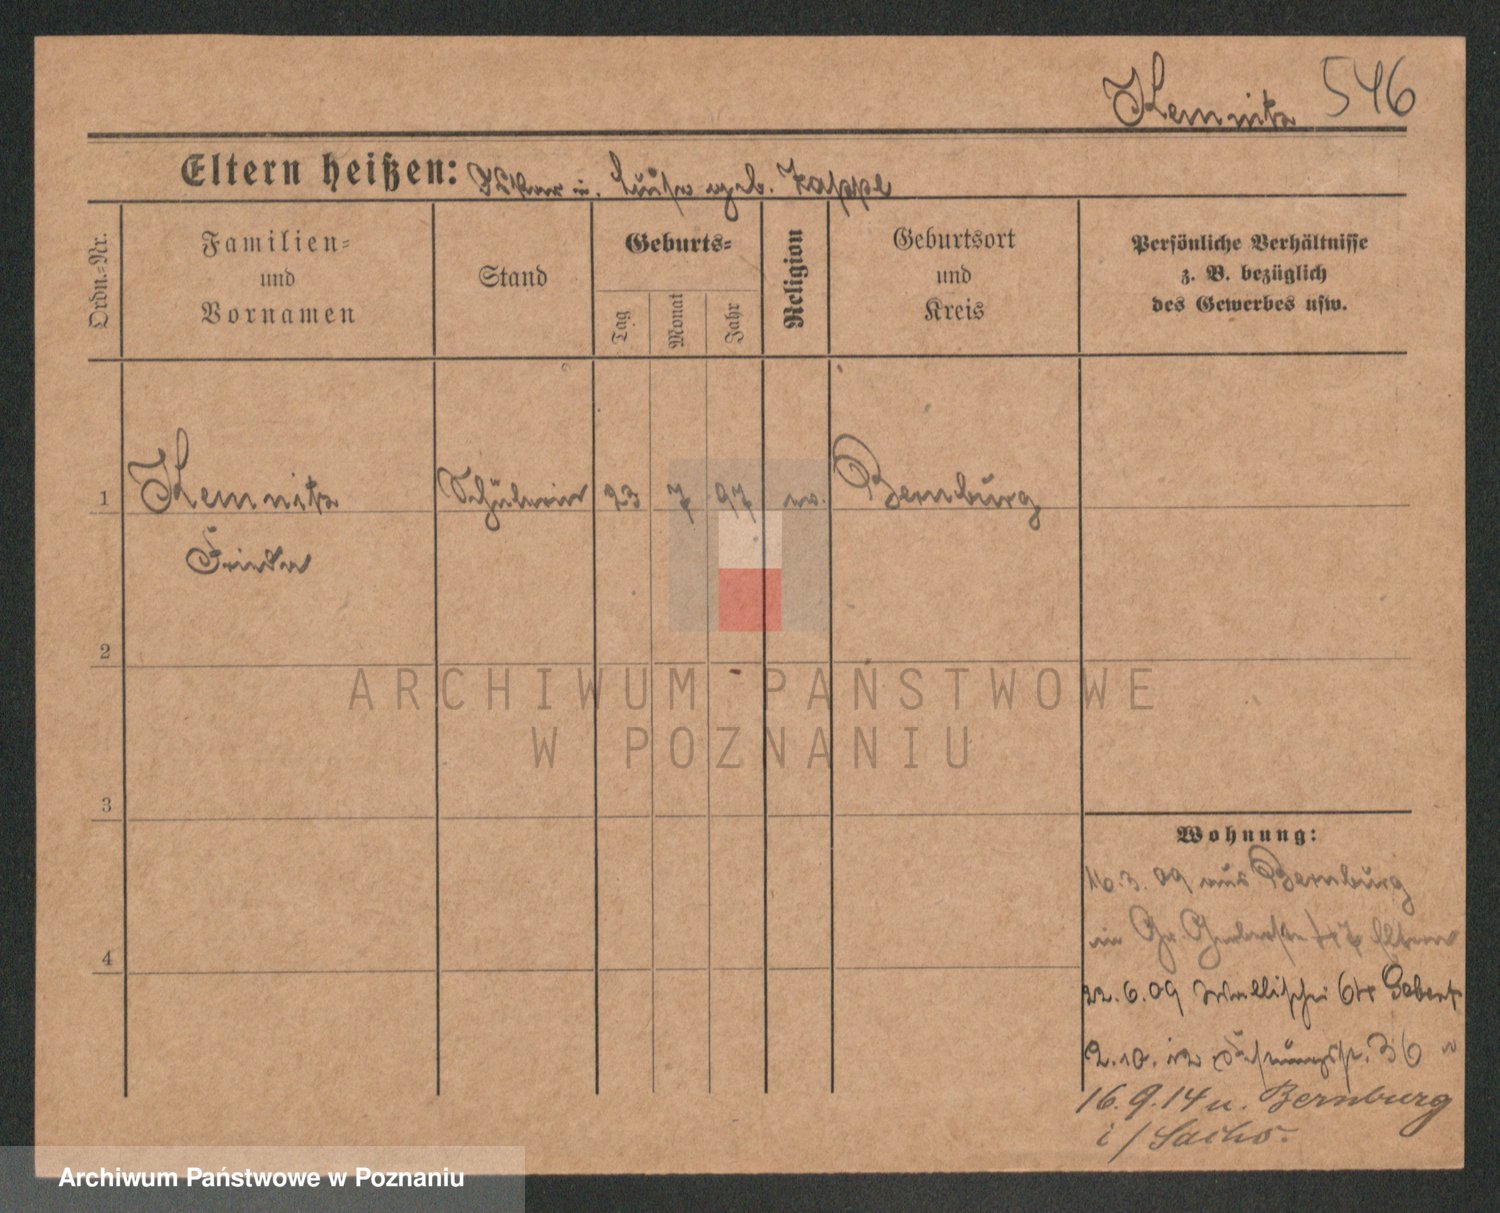 Kemnitz 546
Eltern heißen: Oskar u. Luise geb. Zappe
Ordn.-Nr.
Familien-
und
Vornamen
Stand
Geburts-
Tag
Monat
Jahr
Religion
Geburtsort
und
Kreis
Persönliche Verhältnisse
z. B. bezüglich
des Gewerbes usw.
1 Kemnitz Schülerin 23 7 97 ev. Bernburg
Frieda
2
3
4
Wohnung:
16.3.09 aus Bernburg
in Gr. Gerberstr. Eltern
22.6.09 Wallischei
2.10.12 36
16.9.14 n. Bernburg
i/Sachs.
ARCHIWUM PAŃSTWOWE
W POZNANIU
Archiwum Państwowe w Poznaniu